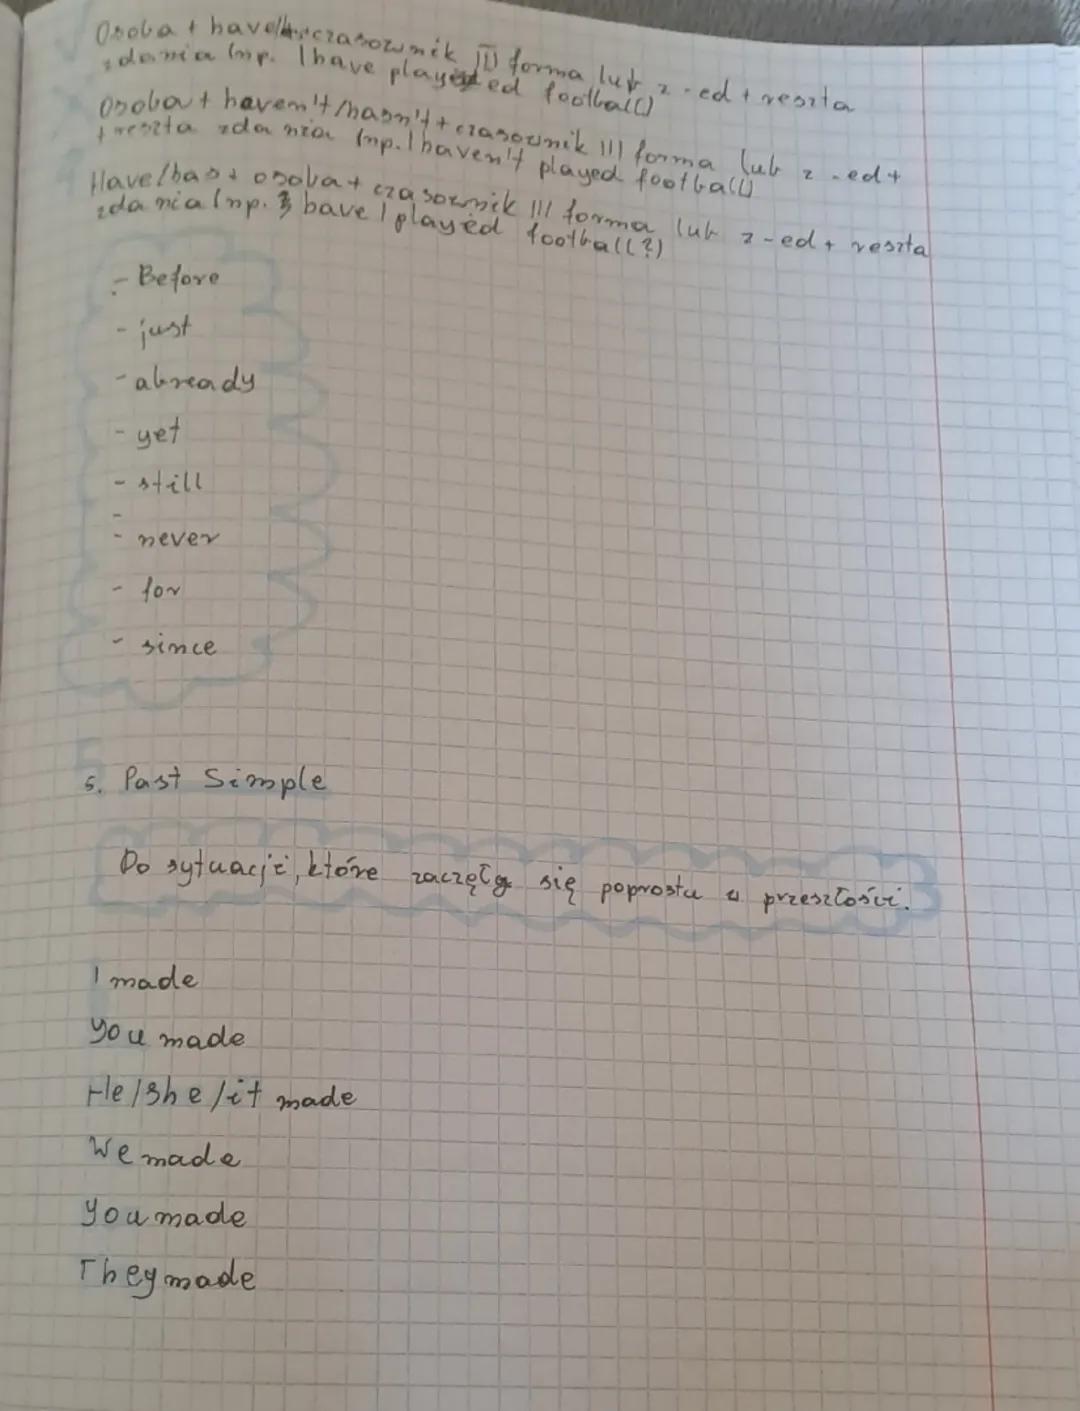 Osoba + have/has+czasownik III forma lub z -ed + reszta
zdania (np. I have played football)
Osoba + haven't/hasn't + czasownik III forma lub z -ed +
+ reszta zdania (np. I haven't played football)
Have/has + osoba + czasownik III forma lub z -ed + reszta
zdania (np. have I played football?)
- Before
- just
- already
- yet
- still
-
- never
- for
- since
5. Past Simple
Do sytuacji, które zaczęły się poprostu w przeszłości.
I made
You made
He/she/it made
We made
You made
They made